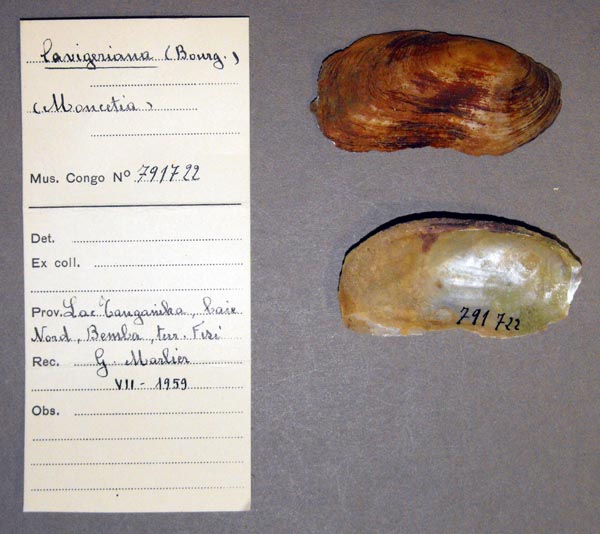 lavigeriana (Bourg.)
(Moncetia)
Mus. Congo Nº 791722
Det.
Ex coll.
Prov. Lac Tanganika, baie
Nord, Bemba, terr. Fizi
Rec. G. Marlier
VII - 1959
Obs.
791 722